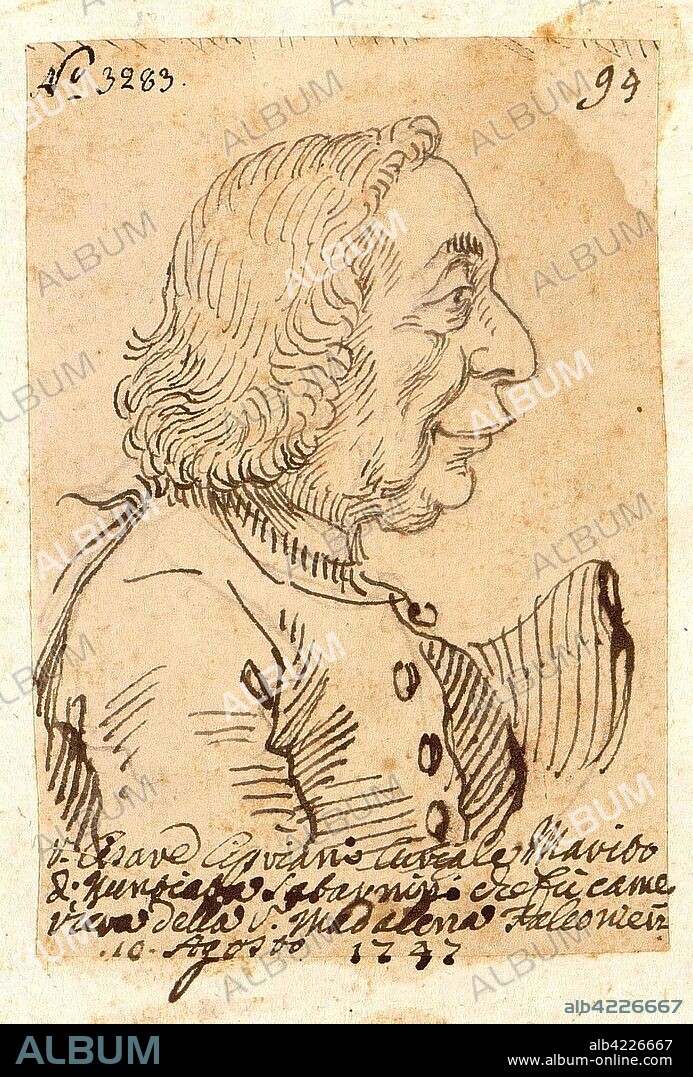 No 3283.
94
Cipriano Curiale Marito
di Nunciata Sabatini che fù came
riera della S. Madalena Falconieri
.10. Agosto 1747
ALBUM
alb4226667
ALBUM
alb4226667
www.album-online.com